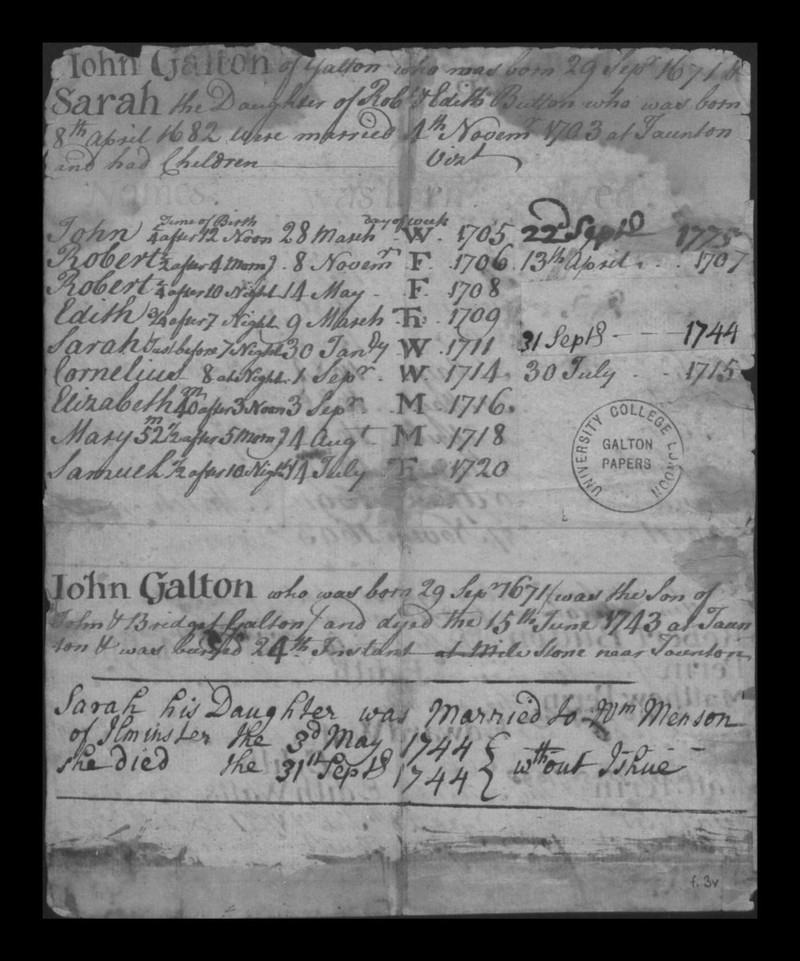 John Galton of Galton who was born 29 Sepr. 1671 &
Sarah the Daughter of Robt. & Edith Button who was born
8th April 1682 were married 4th Novemr 1703 at Taunton
and had Children Vizt
Names: was Born Died
Time of Birth day of week
John ¼ after 12 Noon 28 March W. 1705 22d Septr 1775
Robert ½ after 4 Morng. 8 Novemr F. 1706 13th April 1707
Robert ¼ after 10 Night 14 May F. 1708
Edith ¾ after 7 Night 9 March Th. 1709
Sarah Just before 7 Night 30 Janry W 1711 31 Sept8 1744
Cornelius 8 at Night 1 Sepr. W. 1714 30 July 1715
Elizabeth 40m after 3 Noon 3 Sepr M 1716.
Mary 52m ½ after 5 Morng 4 Augt M 1718
Samuel ½ after 10 Night 14 July Th 1720
UNIVERSITY COLLEGE LONDON
GALTON
PAPERS
John Galton who was born 29 Sepr 1671 (was the Son of
John & Bridget Galton) and dyed the 15th June 1743 at Taun
ton & was buried 24th Instant at Mile Stone near Taunton
Sarah his Daughter was Married to Wm Menson
of Ilminster the 3d May 1744
she died the 31st Sept8 1744 wthout Ishue
f. 3v